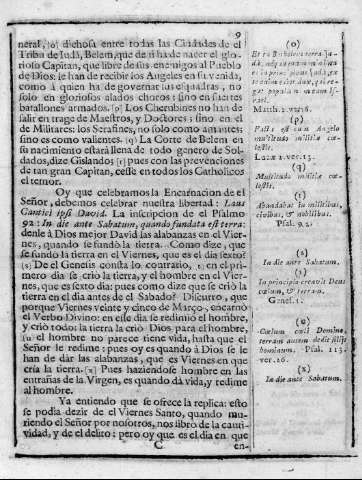 9
neral, [o] dichosa entre todas las Ciudades de el
Tribu de Iudà, Belem, que de ti ha de nacer el glo-
rioso Capitan, que libre de sus enemigos al Pueblo
de Dios: le han de recibir los Angeles en su venida,
como à quien ha de governar sus esquadras, no
solo en gloriosos alados choros; sino en fuertes
batallones armados. [p] Los Cherubines no han de
salir en trage de Maestros, y Doctores; sino en el
de Militares: los Serafines, no solo como amantes;
sino es como valientes. [q] La Corte de Belem en
su nacimiento estarà llena de todo genero de Sol-
dados, dize Gislandos [r] pues con las prevenciones
de tan gran Capitan, cesse en todos los Catholicos
el temor.
Oy que celebramos la Encarnacion de el
Señor, debemos celebrar nuestra libertad: Laus
Cantici ipsi David. La inscripcion de el Psalmo
92: In die ante Sabatum, quando fundata est terra:
denle à Dios mejor David las alabanzas en el Vier-
nes, quando se fundò la tierra. Como dize, que
se fundò la tierra en el Viernes, que es el dia sexto?
[s] De el Genesis consta lo contrario, [t] en el pri-
mero dia se criò la tierra, y el hombre en el Vier-
nes, que es sexto dia: pues como dize que se criò la
tierra en el dia antes de el Sabado? Discurro, que
porque Viernes veinte y cinco de Março, encarnò
el Verbo Divino: en esse dia se redimiò el hombre,
y criò todo: la tierra la criò Dios para el hombre,
[u] el hombre no parece tiene vida, hasta que el
Señor le redime: pues oy es quando à Dios se le
han de dàr las alabanças, que es Viernes en que
cria la tierra. [x] Pues haziendose hombre en las
entrañas de la Virgen, es quando dà vida, y redime
al hombre.
Ya entiendo que se ofrece la replica: esto
se podia dezir de el Viernes Santo, quando mu-
riendo el Señor por nosotros, nos librò de la cauti-
vidad, y de el delito: pero oy que es el dia en que
C en-
(o)
Et tu Bethleem terra Iu-
da, nequaquam minima es
in principibus Iuda, ex
te enim exiet dux, qui re-
gat populum meum Is-
rael.
Matth. 2. v. 6.
(p)
Facta est cum Angelo
multitudo militiæ cæ-
lestis.
Lucæ 2. ver. 13.
(q)
Multitudo militiæ cæ-
lestis.
(r)
Abundabat in militibus,
civibus, & nobilibus.
Psal. 92.
(s)
In die ante Sabatum.
(t)
In principio creavit Deus
cælum, & terram.
Genes. 1.
(u)
Cælum cæli Domino,
terram autem dedit filijs
hominum. Psal. 113.
ver. 16.
(x)
In die ante Sabatum.